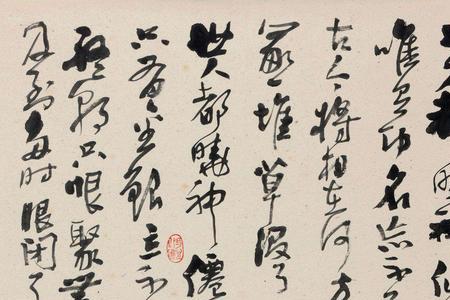 唯有功名忘不
古今將相在何方
冢一堆草沒了
世人都曉神僊
只有金銀忘不
終朝只恨聚無
及到多時眼閉了